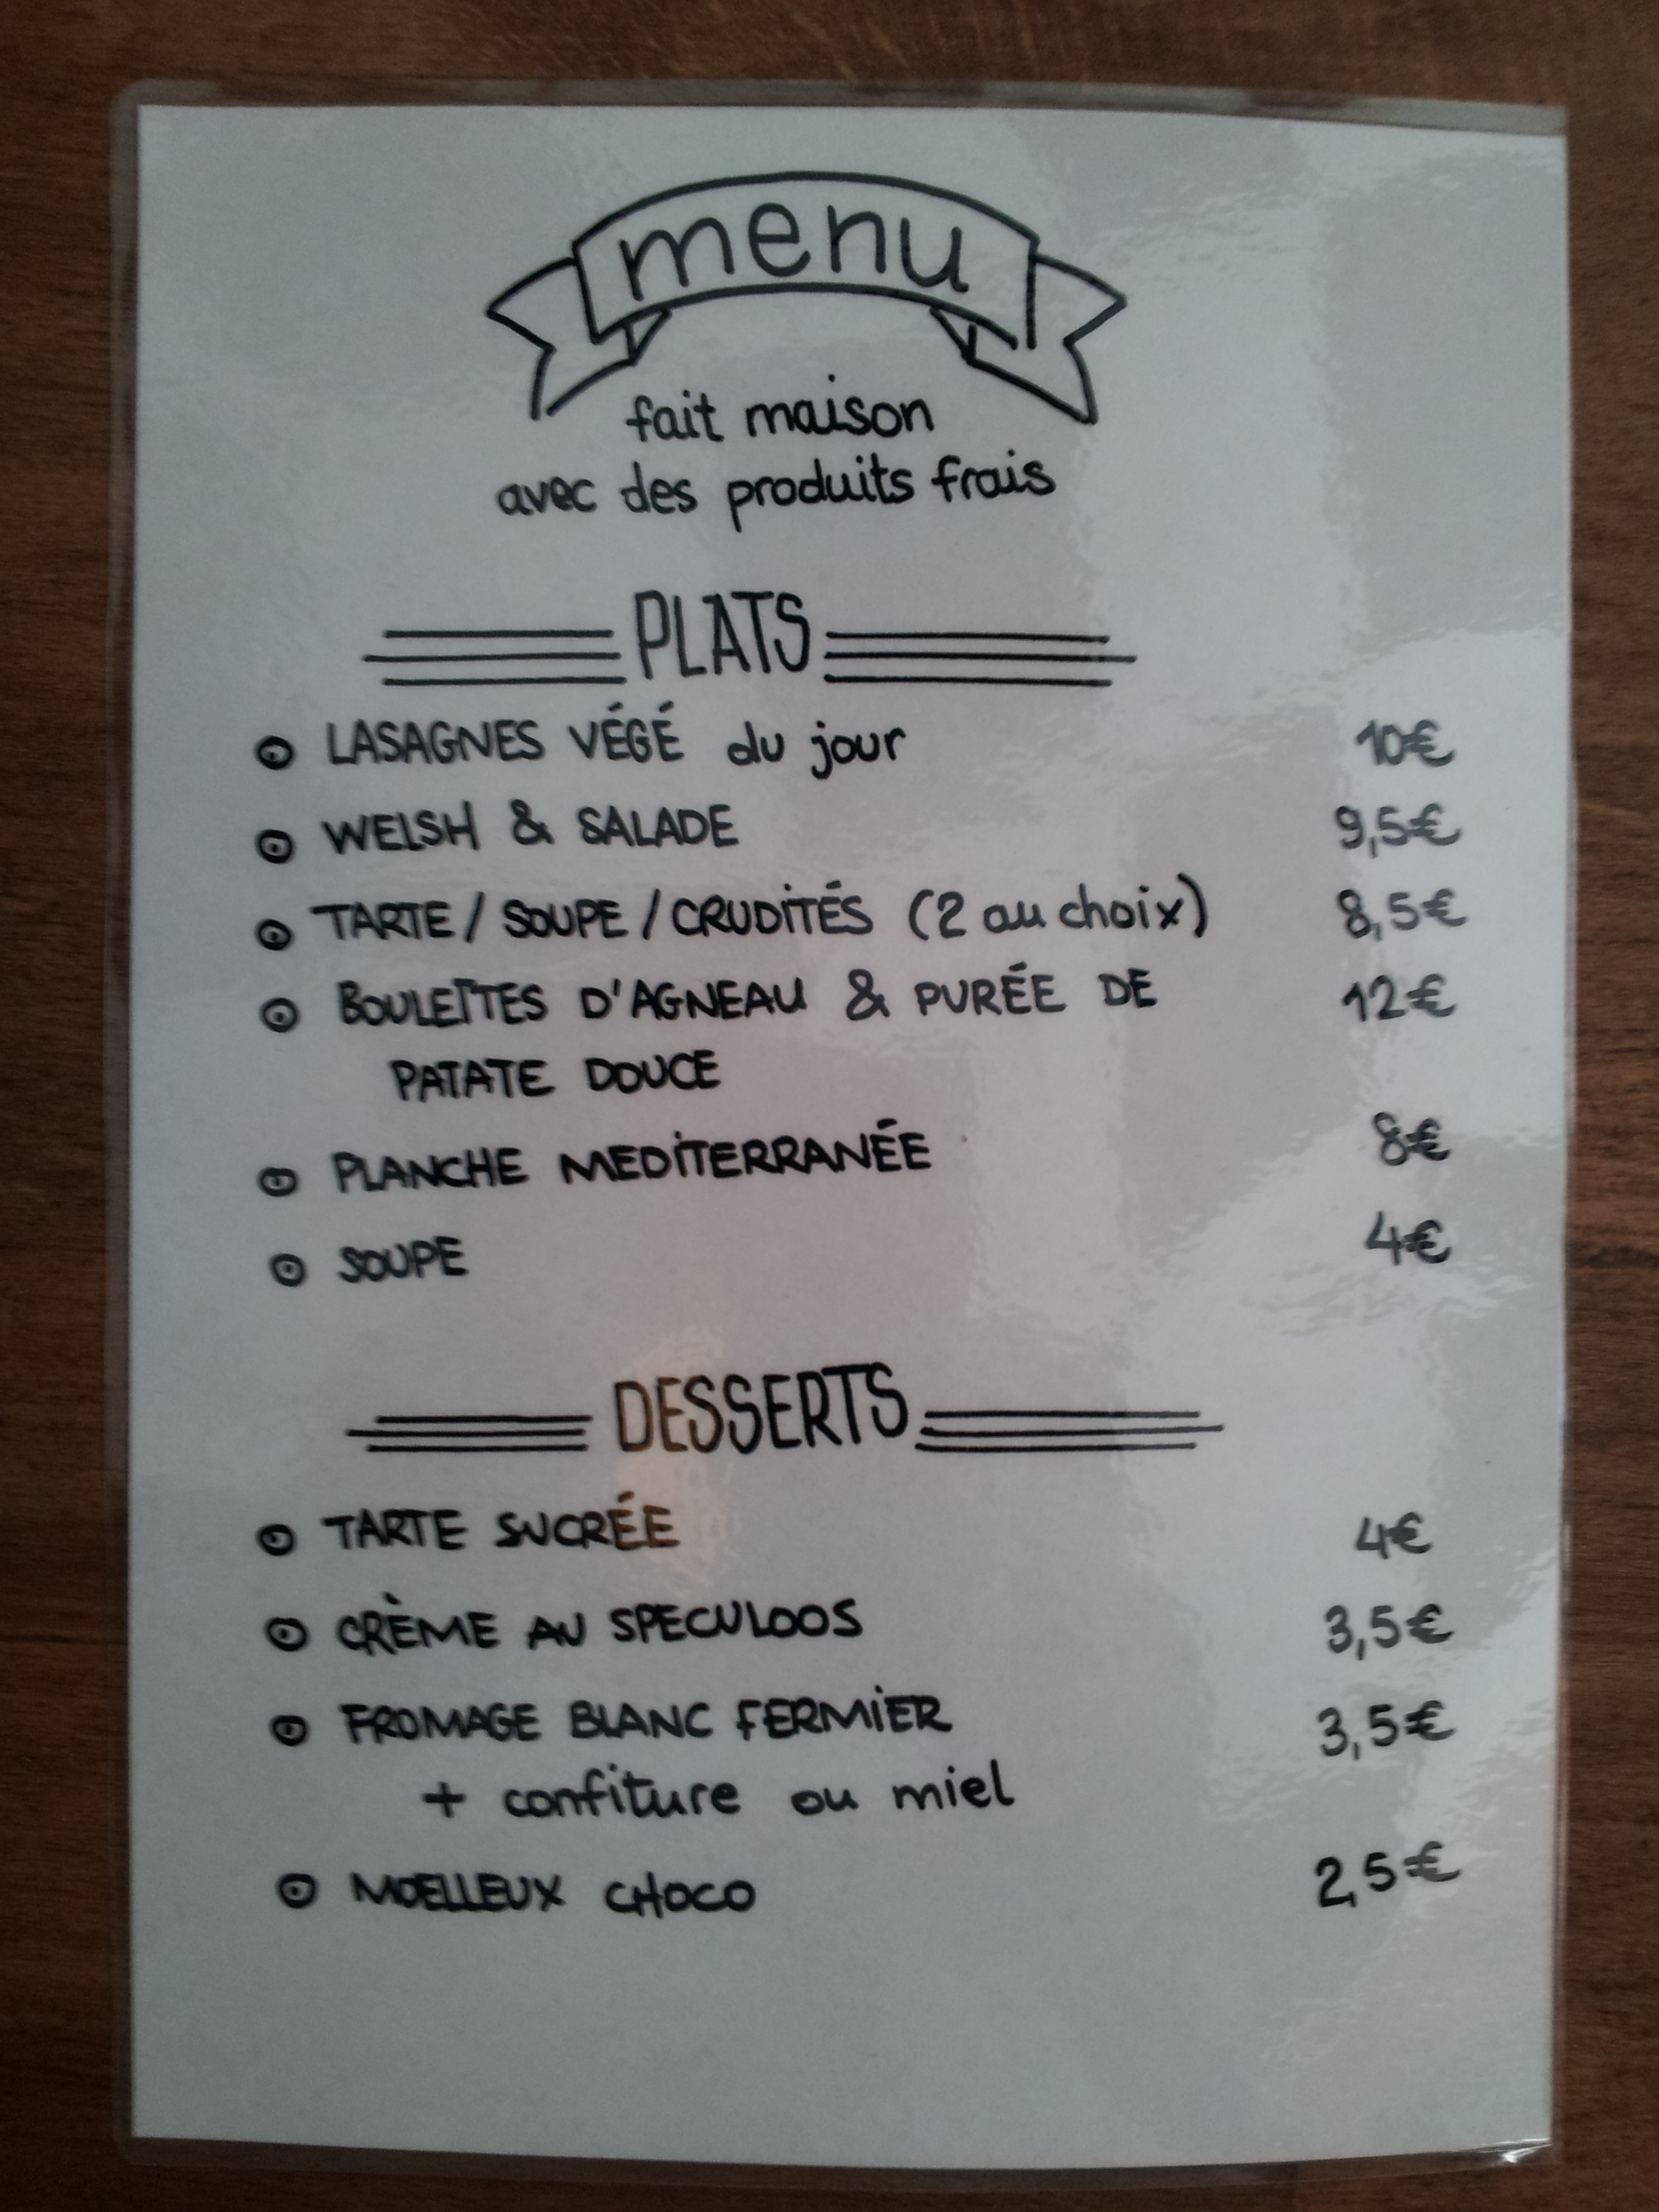 menu
fait maison
avec des produits frais
PLATS
LASAGNES VÉGÉ du jour 10€
WELSH & SALADE 9,5€
TARTE / SOUPE / CRUDITÉS (2 au choix) 8,5€
BOULETTES D'AGNEAU & PURÉE DE 12€
PATATE DOUCE
PLANCHE MEDITERRANÉE 8€
SOUPE 4€
DESSERTS
TARTE SUCRÉE 4€
CRÈME AU SPECULOOS 3,5€
FROMAGE BLANC FERMIER 3,5€
+ confiture ou miel
MOELLEUX CHOCO 2,5€